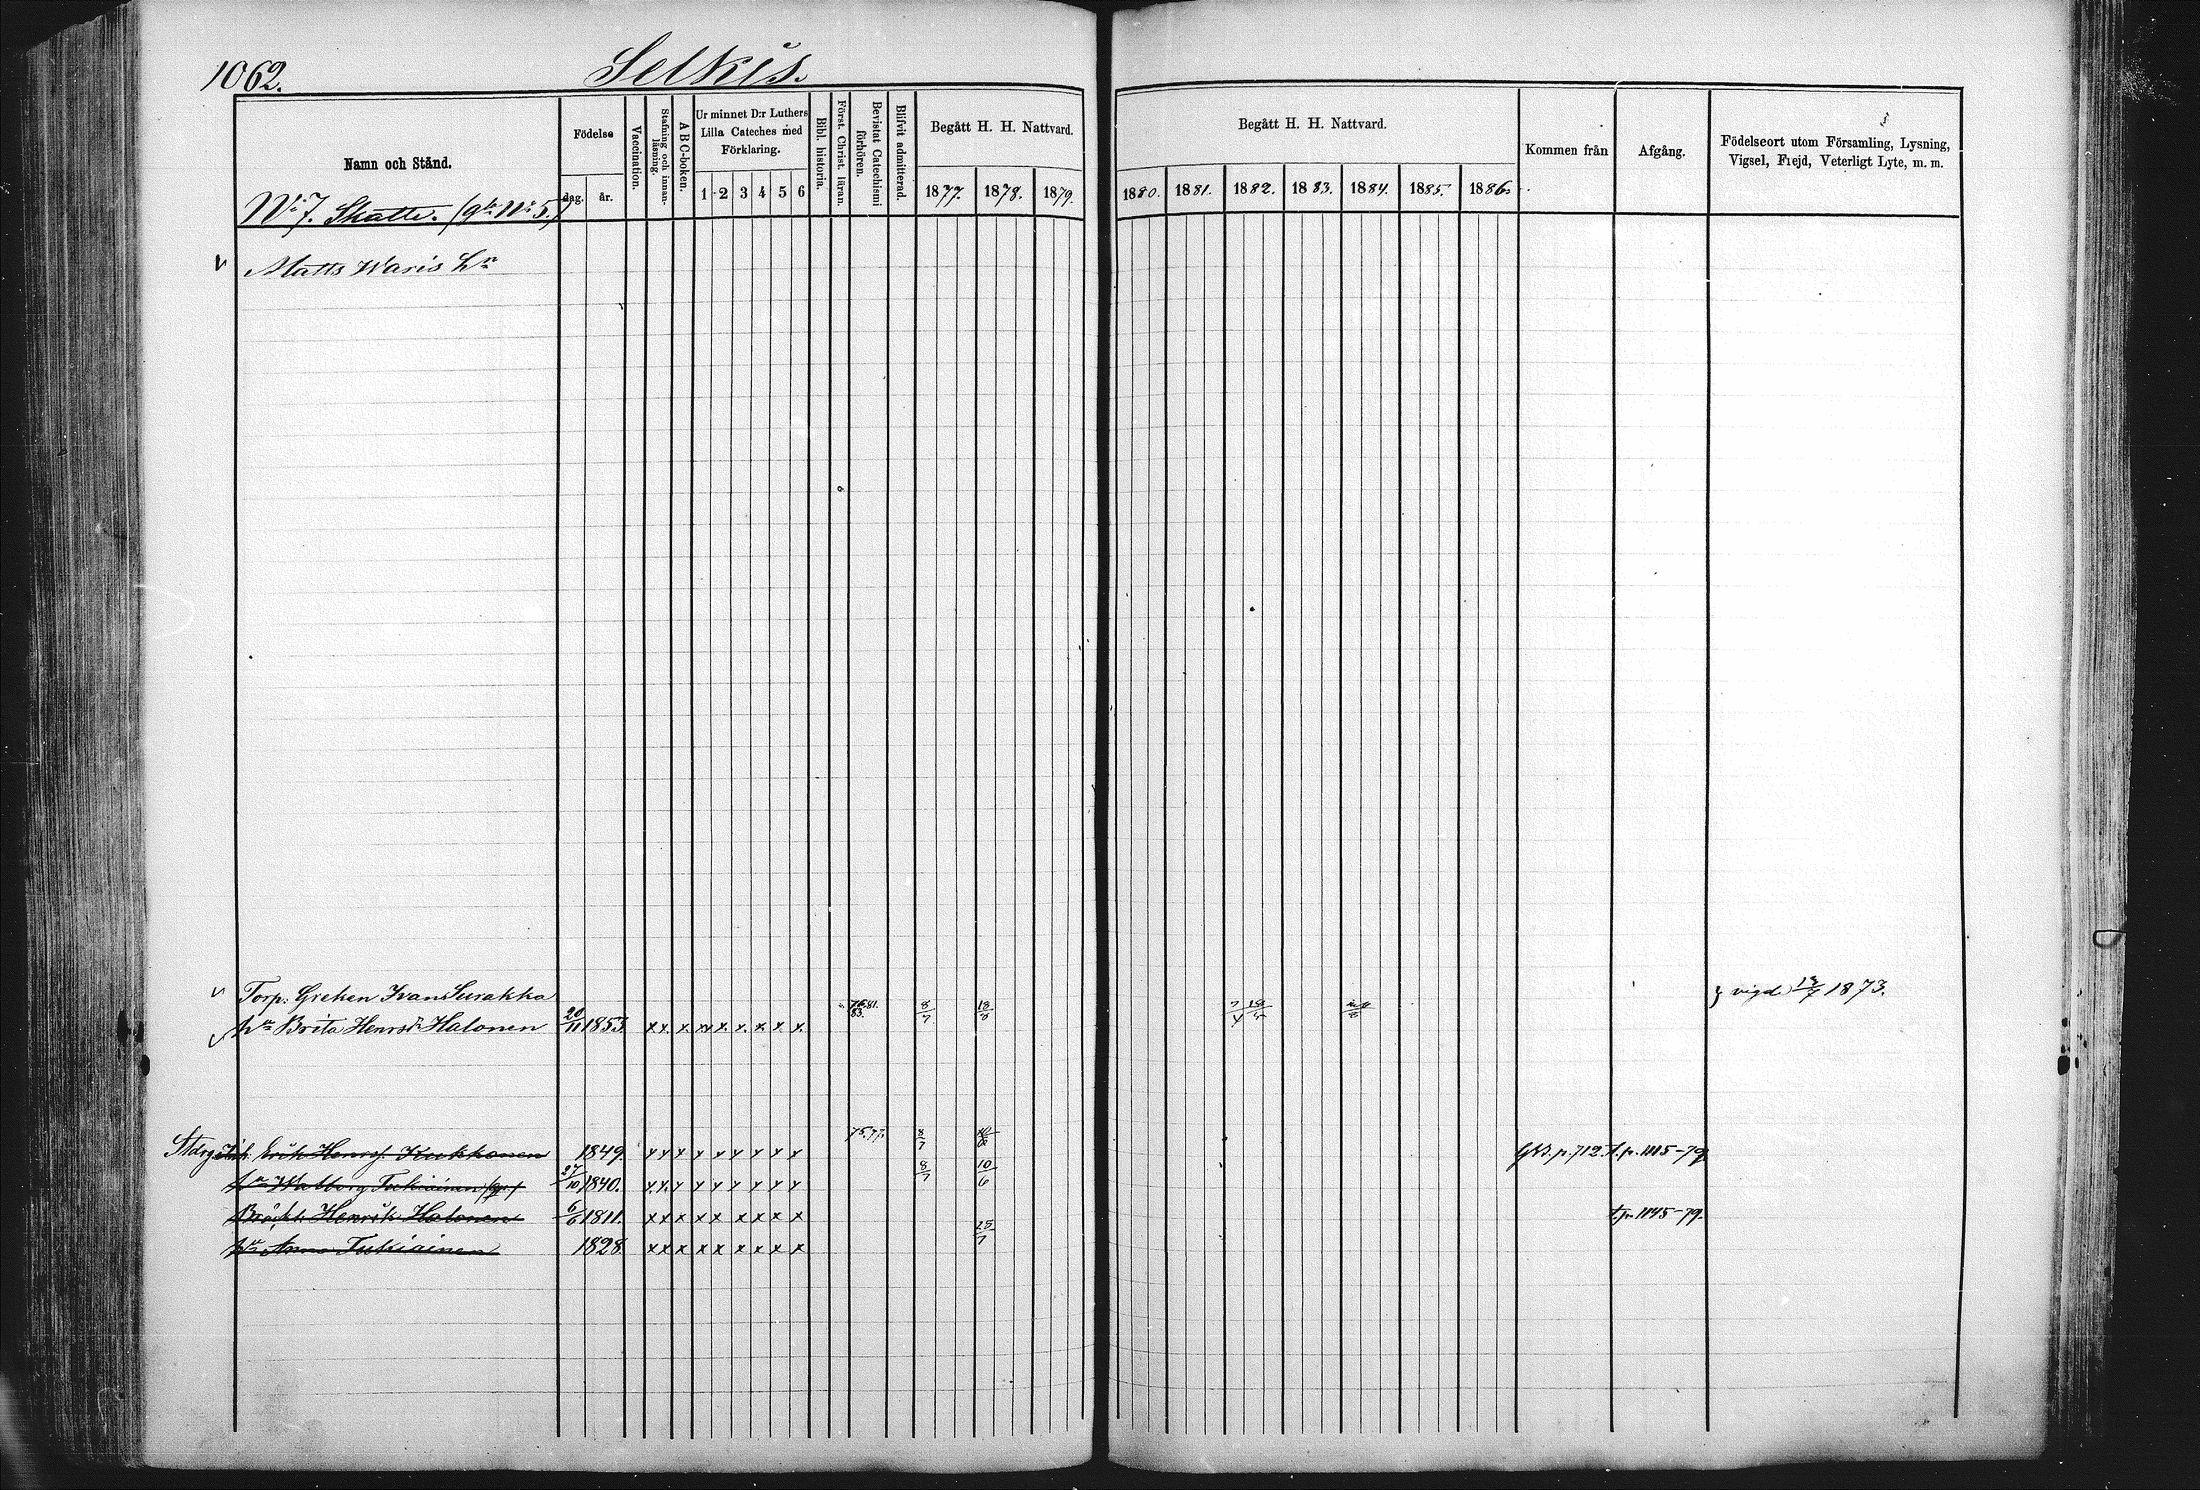 1062.
Selkis.
Namn och Stånd.
Födelse
dag. år.
Vaccination.
Stafning och innan-läsning.
A B C-boken.
Ur minnet D:r Luthers
Lilla Cateches med
Förklaring.
1 2 3 4 5 6
Bibl. historia.
Först. Christ. läran.
Bevistat Catechismi förhören.
Blifvit admitterad.
Begått H. H. Nattvard.
1877. 1878. 1879.
Begått H. H. Nattvard.
1880. 1881. 1882. 1883. 1884. 1885. 1886.
Kommen från
Afgång.
Födelseort utom Församling, Lysning,
Vigsel, Frejd, Veterligt Lyte, m. m.
No 7. Skatte. (gla No 5.)
Matts Waris hu
Torp. Greken Ivan Surakka } vigde 1873.
hu Brita Henrsdr Halonen 20/11 1853. x x x x x x x x x 76.81. 83. 8/7 18/8
Erik Henrss. Kukkonen 1849. x x x x x x x x x 75.77. 8/7 G.K.B. p. 712. t. p. 1115-79
hu Walborg Tukiainen 27/10 1840. x x x x x x x x x 8/7 10/6
Henrik Halonen 6/6 1811. x x x x x x x x x t. p. 1145-79.
hu Anna Tukiainen 1828. x x x x x x x x x 25/7